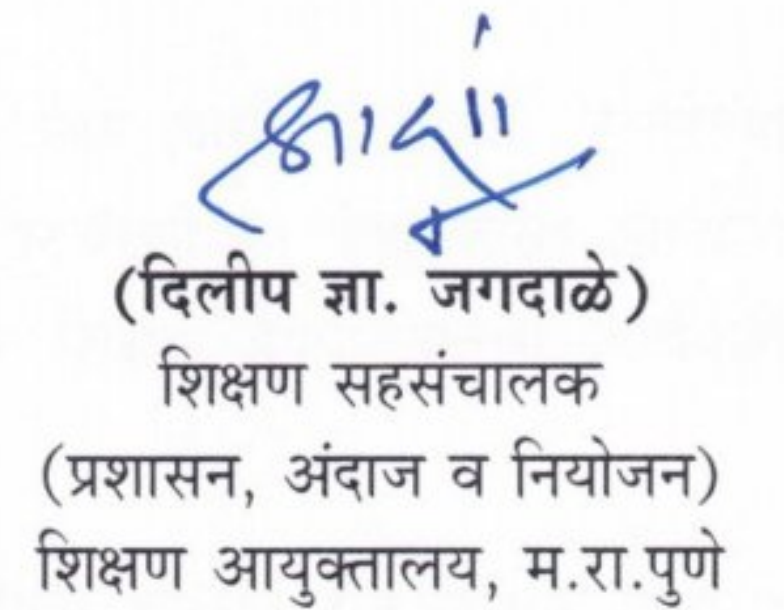 (दिलीप ज्ञा. जगदाळे)
शिक्षण सहसंचालक
(प्रशासन, अंदाज व नियोजन)
शिक्षण आयुक्तालय, म.रा.पुणे